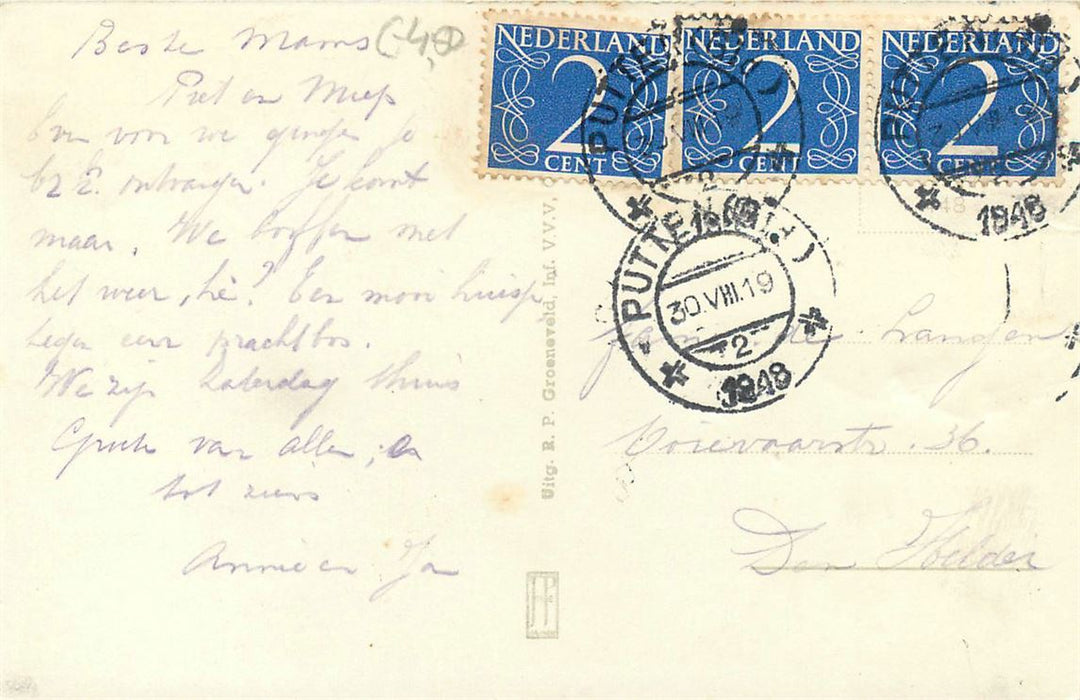 Beste Mams
Piet en Miep
Even voor we gingen je
br. E. ontvangen. Je komt
maar. We boffen met
het weer, hè? Een mooi huisje
tegen een prachtbos.
We zijn Zaterdag thuis
Groete van allen, en
tot ziens
Annie en Jan
NEDERLAND
2
CENT
NEDERLAND
2
CENT
NEDERLAND
2
CENT
PUTTEN (GLD)
30.VIII.19
2
1948
1948
Uitg. R. P. Groeneveld, Inf. V.V.V,
Fam. de
36.
Den Helder